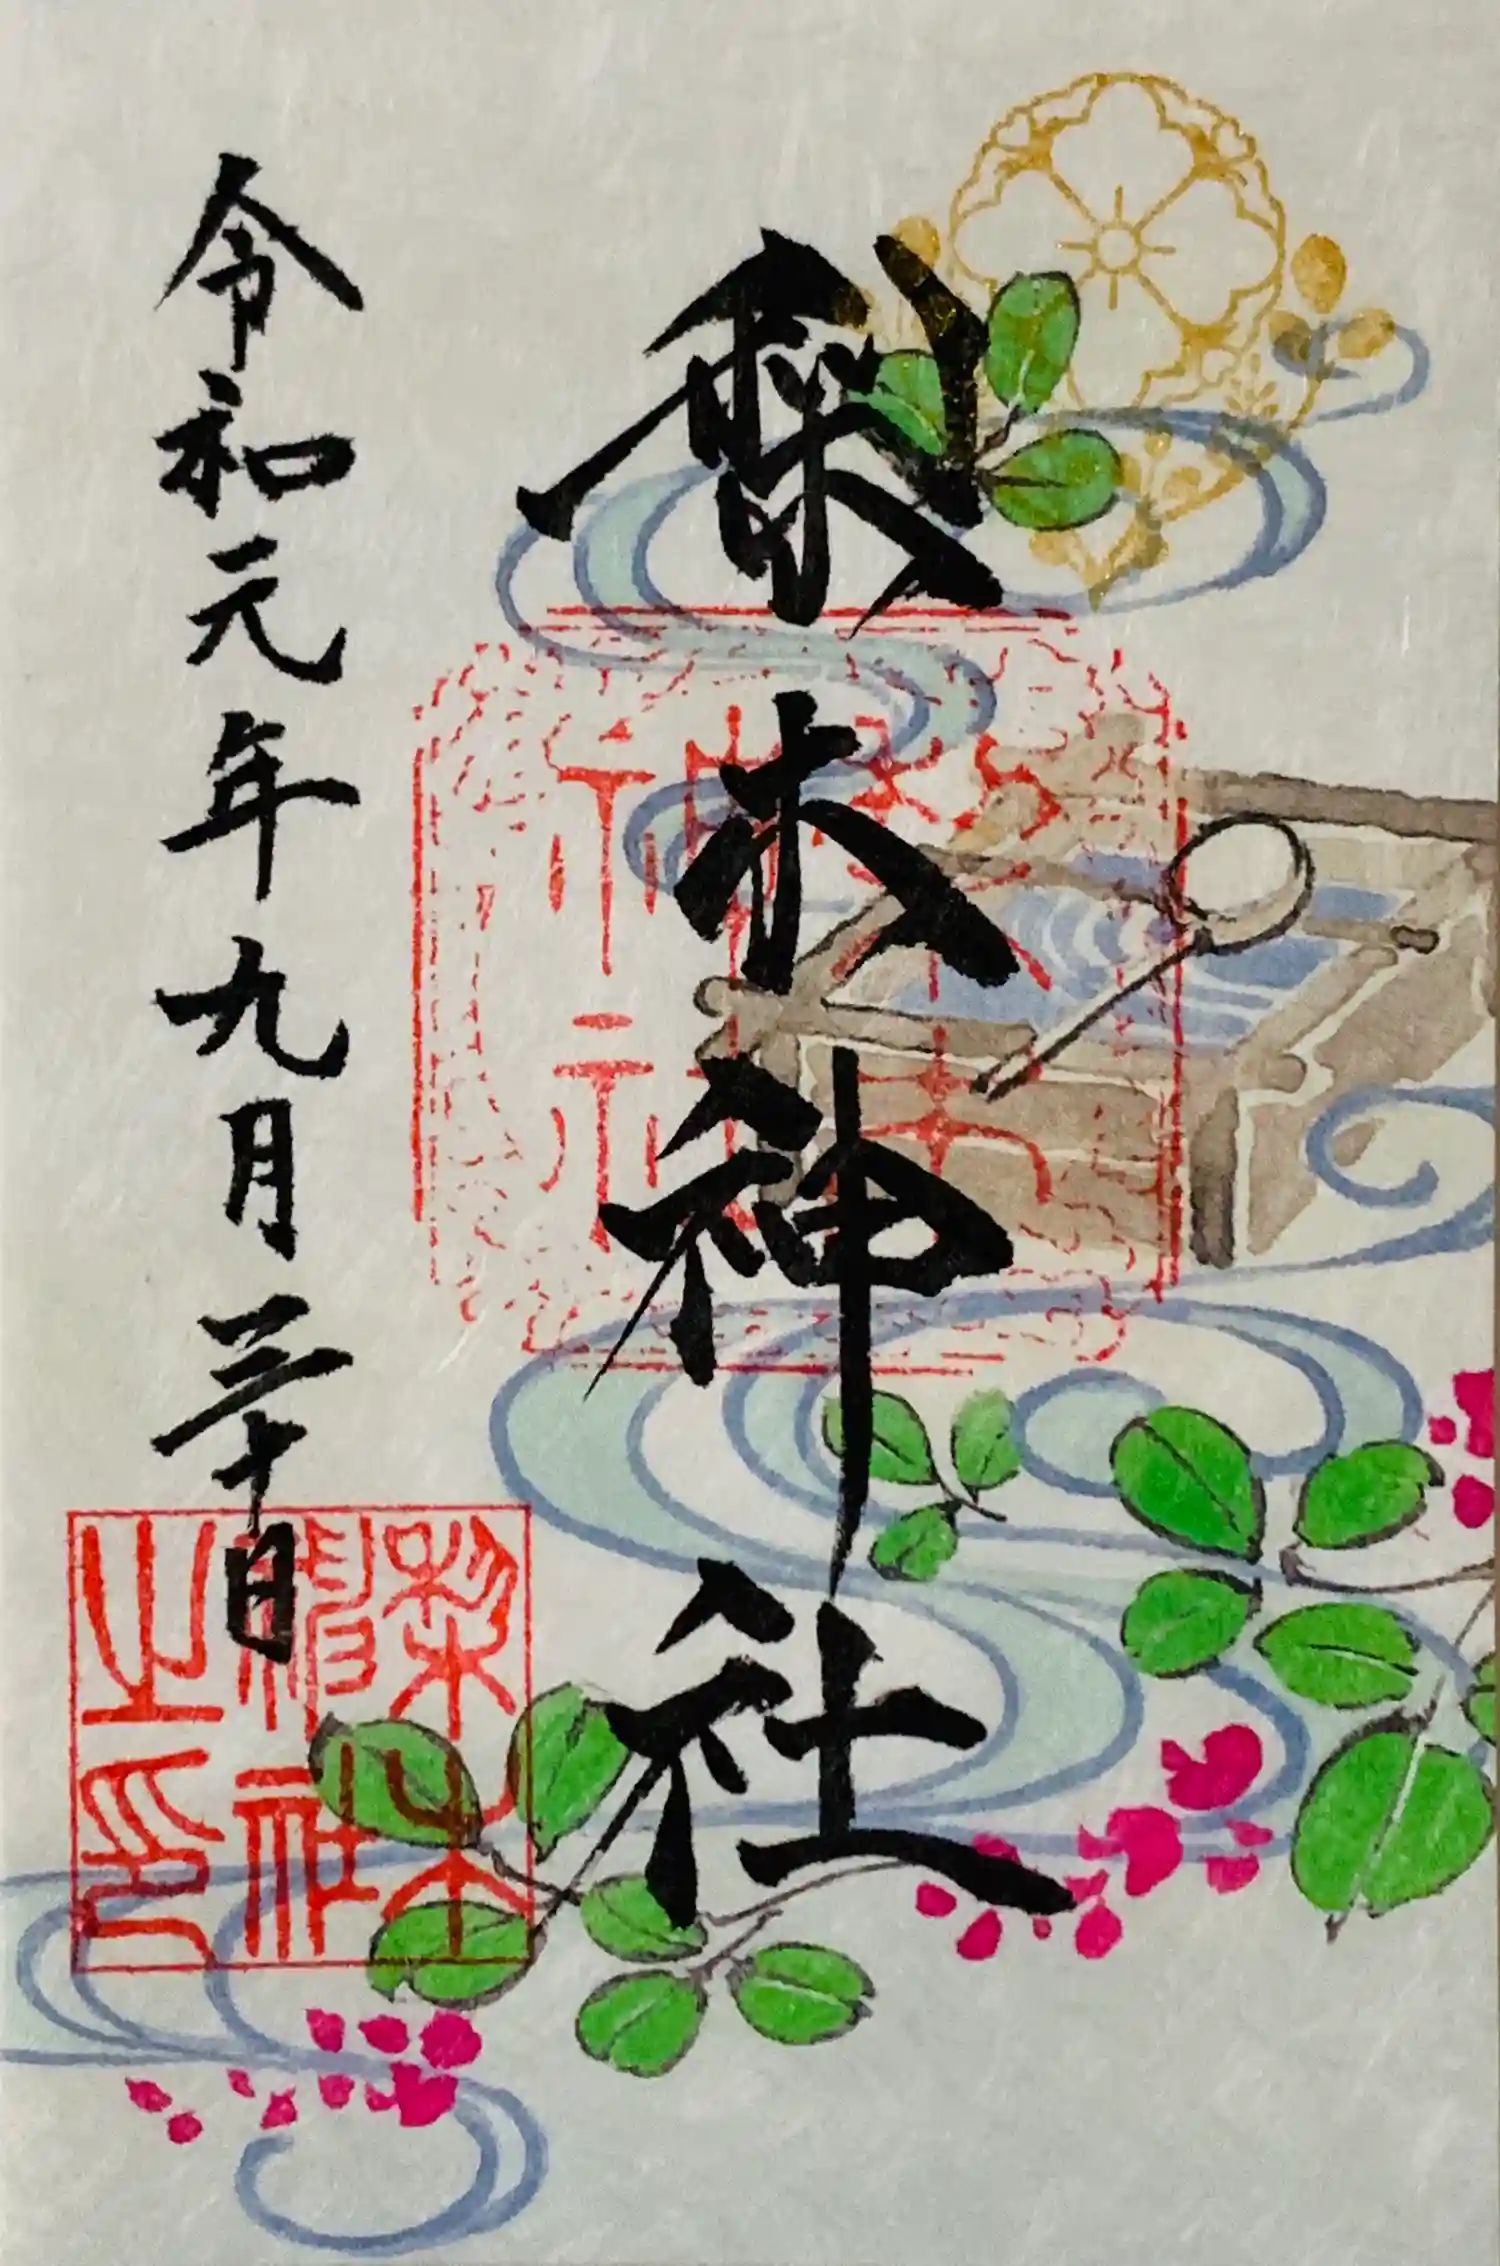 梨木神社
令和元年九月三十日
梨木神社
梨木神社之印